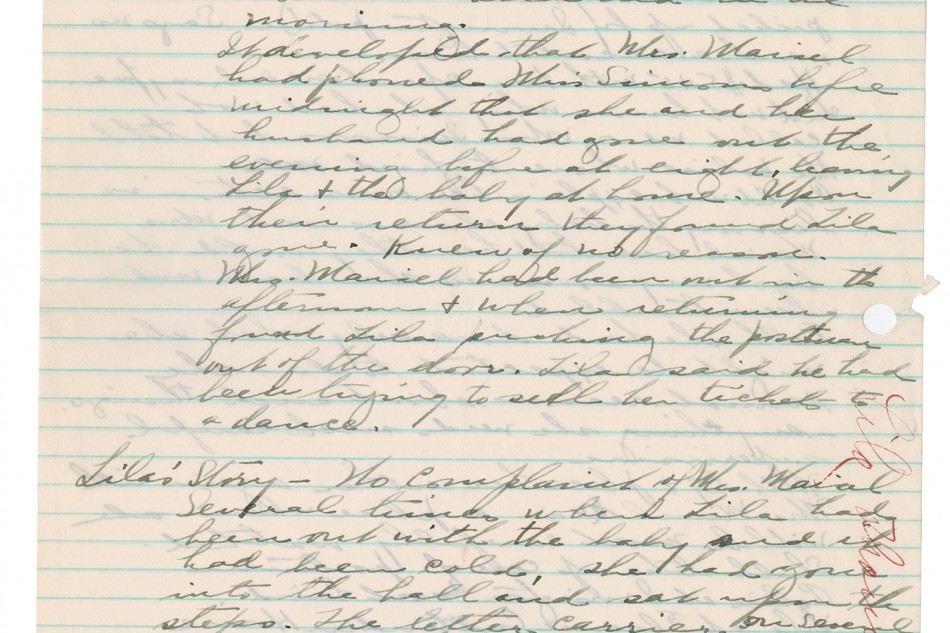 morning.
It developed that Mrs. Maisel
had phoned Miss Simons before
midnight that she and her
husband had gone out the
evening before at eight, leaving
Lila & the baby at home. Upon
their return they found Lila
gone. Knew of no reason.
Mrs. Maisel had been out in the
afternoon & when returning
found Lila pushing the postman
out of the door. Lila said he had
been trying to sell her tickets to
a dance.
Lila's Story - No complaint of Mrs. Maisel
Several times when Lila had
been out with the baby and it
had been cold, she had gone
into the hall and sat upon the
steps. The letter carrier, on several